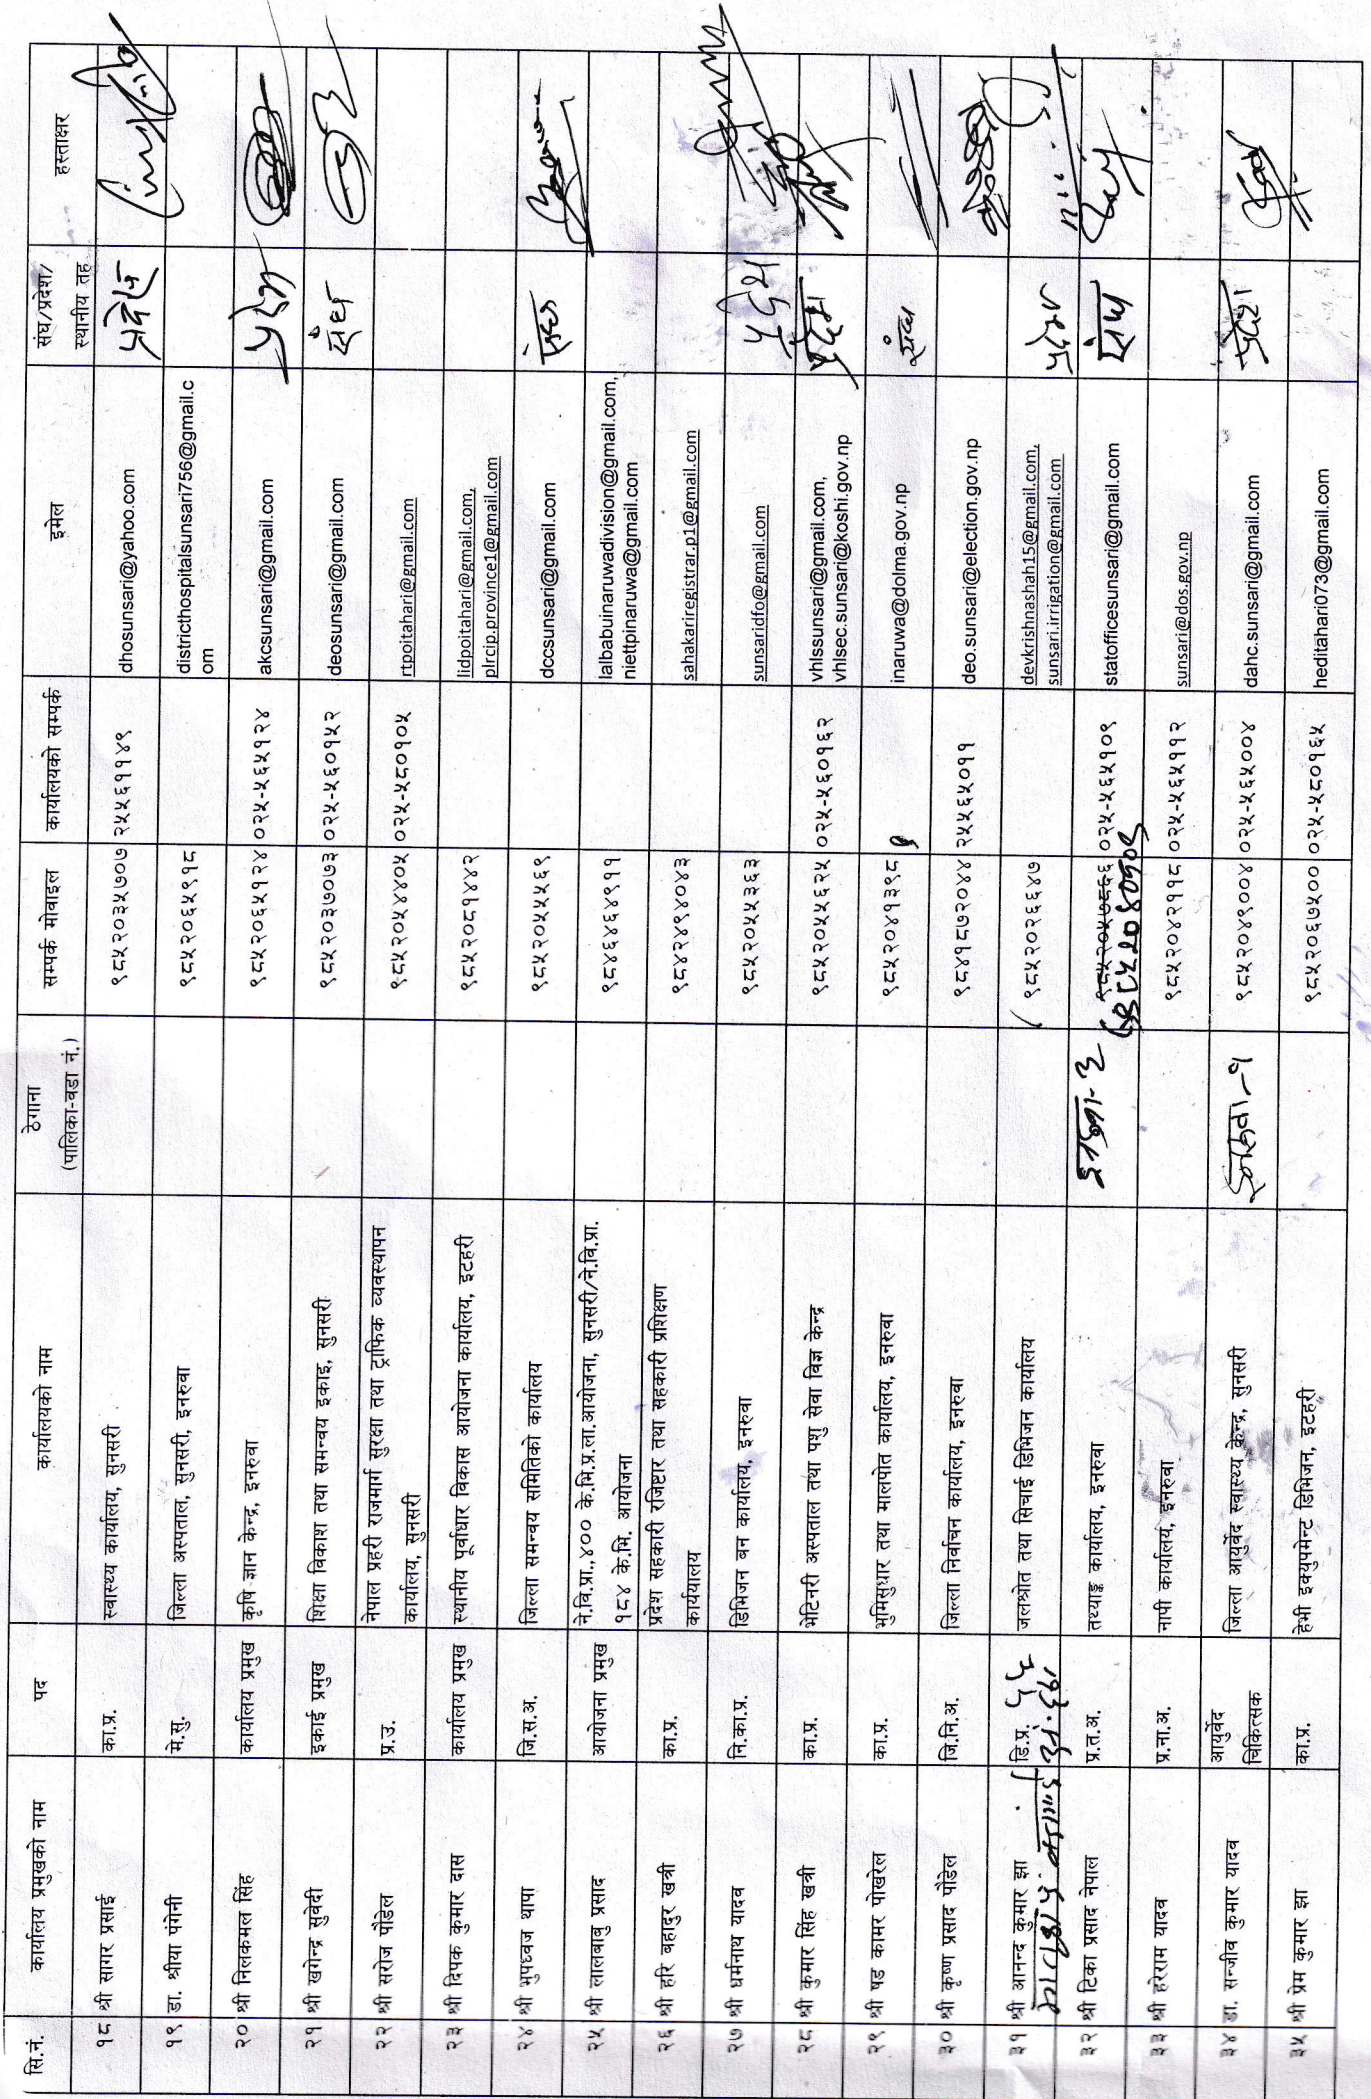 सि.नं. कार्यालय प्रमुखको नाम पद कार्यालयको नाम ठेगाना (पालिका-वडा नं.) सम्पर्क मोवाइल कार्यालयको सम्पर्क इमेल संघ/प्रदेश/ स्थानीय तह हस्ताक्षर
१८ श्री सागर प्रसाई का.प्र. स्वास्थ्य कार्यालय, सुनसरी ९८५२०३५७०७ २५५६११४९ dhosunsari@yahoo.com प्रदेश
१९ डा. श्रीया पंगेनी मे.सु. जिल्ला अस्पताल, सुनसरी, इनरुवा ९८५२०६५९१८ districthospitalsunsari756@gmail.c
om
२० श्री निलकमल सिंह कार्यालय प्रमुख कृषि ज्ञान केन्द्र, इनरुवा ९८५२०६५१२४ ०२५-५६५१२४ akcsunsari@gmail.com प्रदेश
२१ श्री खगेन्द्र सुवेदी इकाई प्रमुख शिक्षा विकाश तथा समन्वय इकाइ, सुनसरी ९८५२०३७०७३ ०२५-५६०१५२ deosunsari@gmail.com संघ
२२ श्री सरोज पौडेल प्र.उ. नेपाल प्रहरी राजमार्ग सुरक्षा तथा ट्राफिक व्यवस्थापन
कार्यालय, सुनसरी ९८५२०५४४०५ ०२५-५८०१०५ rtpoitahari@gmail.com
२३ श्री दिपक कुमार दास कार्यालय प्रमुख स्थानीय पूर्वाधार विकास आयोजना कार्यालय, इटहरी ९८५२०८१४४२ lidpoitahari@gmail.com,
plrcirp.province1@gmail.com
२४ श्री भुपध्वज थापा जि.स.अ. जिल्ला समन्वय समितिको कार्यालय ९८५२०५५५६९ dccsunsari@gmail.com संघ
२५ श्री लालबाबु प्रसाद आयोजना प्रमुख ने.वि.प्रा.,४०० के.भि.प्र.ला.आयोजना, सुनसरी/ने.वि.प्रा.
१८४ के.मि. आयोजना ९८४६४६४९११ lalbabuinaruwadivision@gmail.com,
niettpinaruwa@gmail.com
२६ श्री हरि बहादुर खत्री का.प्र. प्रदेश सहकारी रजिष्टार तथा सहकारी प्रशिक्षण
कार्ययालय ९८४२४९४०४३ sahakariregistrar.p1@gmail.com
२७ श्री धर्मनाथ यादव नि.का.प्र. डिभिजन वन कार्यालय, इनरुवा ९८५२०५५३६३ sunsaridfo@gmail.com प्रदेश
२८ श्री कुमार सिंह खत्री का.प्र. भेटिनरी अस्पताल तथा पशु सेवा विज्ञ केन्द्र ९८५२०५५६२५ ०२५-५६०१६२ vhlssunsari@gmail.com,
vhlsec.sunsari@koshi.gov.np प्रदेश
२९ श्री षड कामर पोखरेल का.प्र. भुमिसुधार तथा मालपोत कार्यालय, इनरुवा ९८५२०४१३९८ inaruwa@dolma.gov.np संघ
३० श्री कृष्ण प्रसाद पौडेल जि.नि.अ. जिल्ला निर्वाचन कार्यालय, इनरुवा ९८४१८७२०४४ २५५६५०११ deo.sunsari@election.gov.np
३१ श्री आनन्द कुमार झा डि.प्र. जलश्रोत तथा सिचाई डिभिजन कार्यालय ९८५२०२६६४७ devkrishnashah15@gmail.com,
sunsari.irrigation@gmail.com प्रदेश
३२ श्री टिका प्रसाद नेपाल प्र.त.अ. तथ्याङ्क कार्यालय, इनरुवा ९८५२०५७८६६ ०२५-५६५१०९ statofficesunsari@gmail.com संघ
३३ श्री हरेराम यादव प्र.ना.अ. नापी कार्यालय, इनरुवा ९८५२०४२११८ ०२५-५६५११२ sunsari@dos.gov.np
३४ डा. सन्जीव कुमार यादव आयुर्वेद
चिकित्सक जिल्ला आयुर्वेद स्वास्थ्य केन्द्र, सुनसरी इनरुवा-१ ९८५२०४९००४ ०२५-५६५००४ dahc.sunsari@gmail.com प्रदेश
३५ श्री प्रेम कुमार झा का.प्र. हेभी इक्युपमेन्ट डिभिजन, इटहरी ९८५२०६७५०० ०२५-५८०१६५ heditahari073@gmail.com